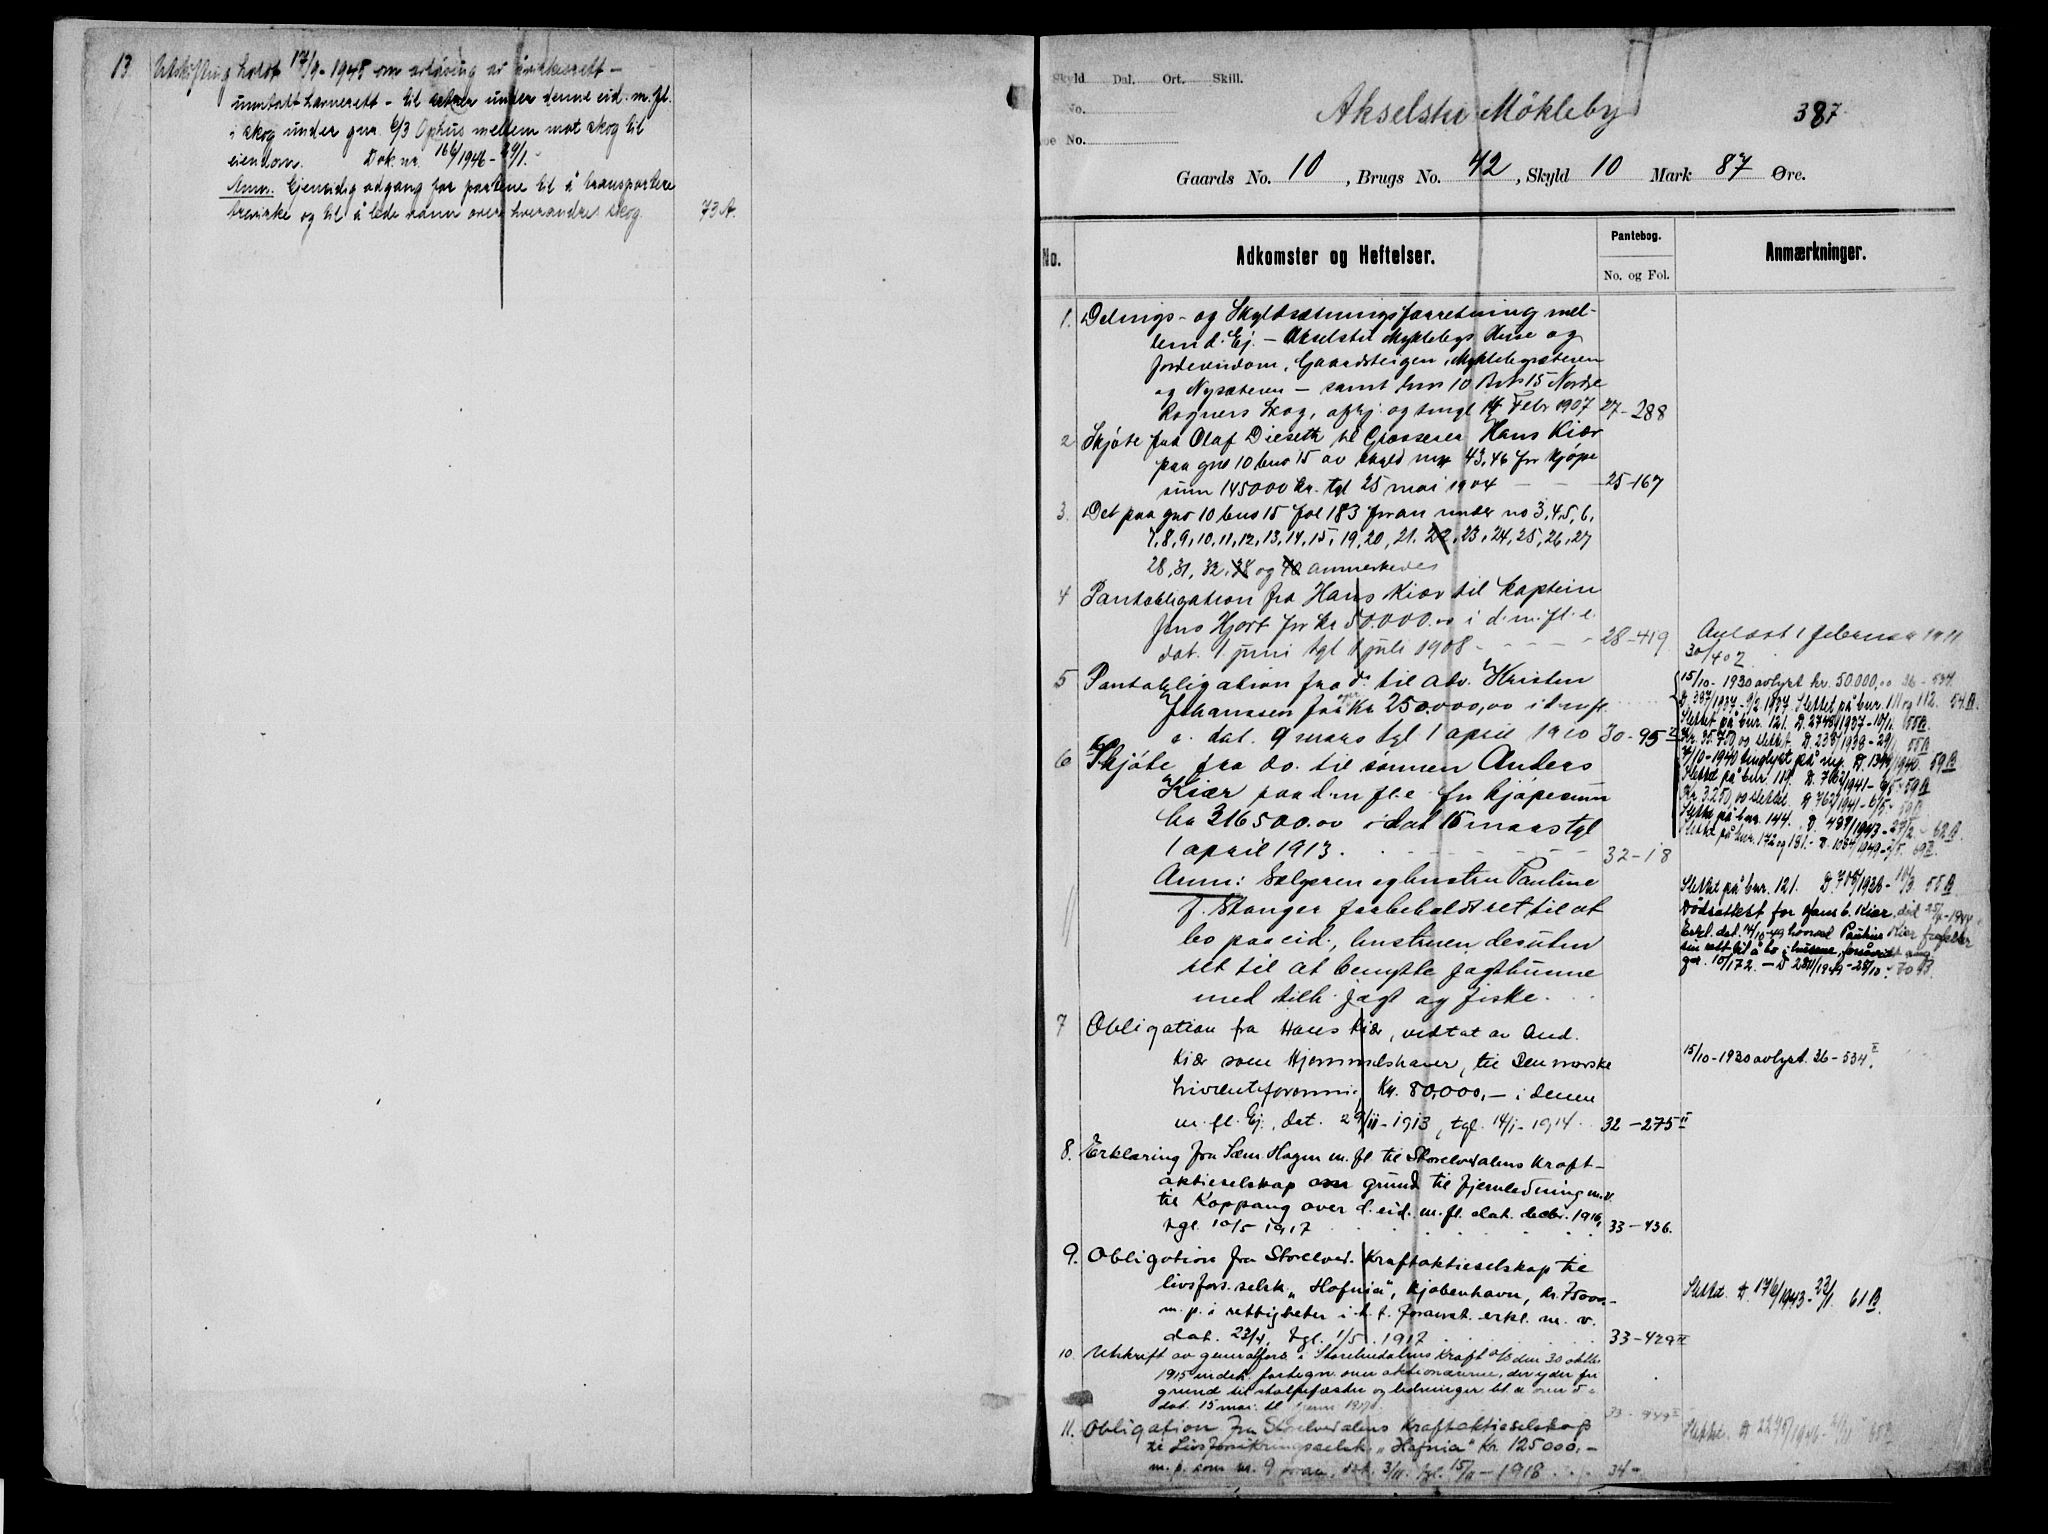 13. Utskifting holdt 17/9-1948 om avløsing av virkesrett -
unntatt havnerett - til setrer under denne eid. m. fl.
i skog under gnr. 6/3 Ophus mellem mot skog til
eiendom. Dok. nr. 166/1946 - 29/1.
Anm. Gjensidig adgang for partene til å transportere
trevirke og til å lede vann over hverandres skog. 73 A.
Skyld Dal. Ort. Skill.
No.
No.
Akselstu Mökleby 387
Gaards No. 10, Brugs No. 42, Skyld 10 Mark 87 Øre.
No. Adkomster og Heftelser. Pantebog. No. og Fol. Anmærkninger.
1. Delings- og Skyldsætningsforretning mel-
lem d. Ej. - Akselstu Myklebys Huse og
Jordeiendom, Gaardsteigen, Myklebysæteren
og Nysæteren - samt bno 10 Brno 15 Nordre
Kogners Skog, afhj. og tingl 14 Febr 1907 27-288
2 Skjøte fra Olaf Dieseth til Grosserer Hans Kiær
paa gno 10 bno 15 av skyld mk 43,46 for kjøpe
sum 145000 kr. tgl 25 mai 1904 25-167
3. Det paa gno 10 bno 15 fol 183 foran under no 3, 4, 5, 6,
7, 8, 9, 10, 11, 12, 13, 14, 15, 19, 20, 21, 22, 23, 24, 25, 26, 27
28, 31, 32, 38 og 40 anmerkedes
4 Pantobligation fra Hans Kiær til kaptein
Jens Hjort for kr 50.000.00 i d. m. fl. e.
dat. 1 juni tgl 1 juli 1908 28-419
Avlæst 1 februar 1911
30/402
5 Pantobligation fra do til adv. Kristen
Johanssen for opr. kr 250.000,00 i d m fl
e. dat. 9 mars tgl 1 april 1910 30-95 II
15/10-1930 avlyst kr. 50.000,00 36-534
D. 387/1937 - 9/2 1937 Slettet på bnr. 111 og 112. 54 B.
Slettet på bnr. 121. D. 2748/1937 - 10/1. 55 B.
Kr. 35.750,00 slettet. D. 238/1938 - 29/1 55 B
4/10-1940 tinglyst på ny. D. 1399/1940. 59 B
Slettet på bnr. 119. D. 762/1941 - 6/5 - 59 B
Kr. 3.250,00 slettet. D. 762/1941 - 6/5 - 59 B
Slettet på bnr. 144. D. 487/1943 - 27/2 - 62 B.
Slettet på bnr. 172 og 181. - D. 1084/1949 - 2/5. 69 B.
6 Skjøte fra do. til sønnen Anders
Kiær paa d. m fl. e. for kjøpesum
kr 316500.00 dat 15 mars tgl
1 april 1913. 32-18
Anm: Sælgeren og hustru Pauline
f. Stanger forbeholdt ret til at
bo paa eid., hustruen desuten
ret til at benytte jagthunne
med tilh. jagt og fiske.
Slettet på bnr. 121. D. 706/1938 - 10/3. 55 B
Dødsattest for Hans b. Kiær, død 25/4-1944
Erkl. dat. 4/10-49 hvorved Pauline Kiær frafaller
sin rett til å bo i husene, forsåvidt ang.
gnr. 10/172. - D 2811/1949 - 28/10. 70 B.
7 Obligation fra Hans Kiær, vedtat av And.
Kiær som Hjemmelshaver, til Den norske
Livrenteforening Kr. 80,000,- i denne
m. fl. Ej., dat. 29/11-1913, tgl. 14/1-1914. 32-275 II
15/10-1930 avlyst. 36-534 II.
8. Erklæring fra Sæm. Hagen m. fl. til Storelvdalens Kraft-
aktieselskap om grund til fjernledning m.v.
til Koppang over d. eid. m. fl. dat. decbr. 1916,
tgl. 10/5 1917 33-436.
9. Obligation fra Storelvd. Kraftaktieselskap til
livsfors. selsk. "Hafnia", Kjøbenhavn, kr. 75000-
m. p. i rettigheter i h. t. foranst. erkl. m. v.
dat. 23/4, tgl. 1/5 1917 33-429 II
Slettet. D. 176/1943 - 22/1. 61 B.
10. Utskrift av generalfors. i Storelvdalens Kraft A/S den 30 oktbr
1915 indeh. fortegn. over aktionærerne, der yder fri
grund til stolpefæster og ledninger bl. a. over d e
dat. 15 mai. tl. juni 1917. 33-449 II
11. Obligation fra Storelvdalens Kraftaktieselskap
til Livsforsikringsselsk. "Hafnia" Kr. 125000,-
m. p. som nr. 9 foran, dat. 3/11. tgl. 15/11-1918. 34-
Slettet. D 2298/1946 - 65 B